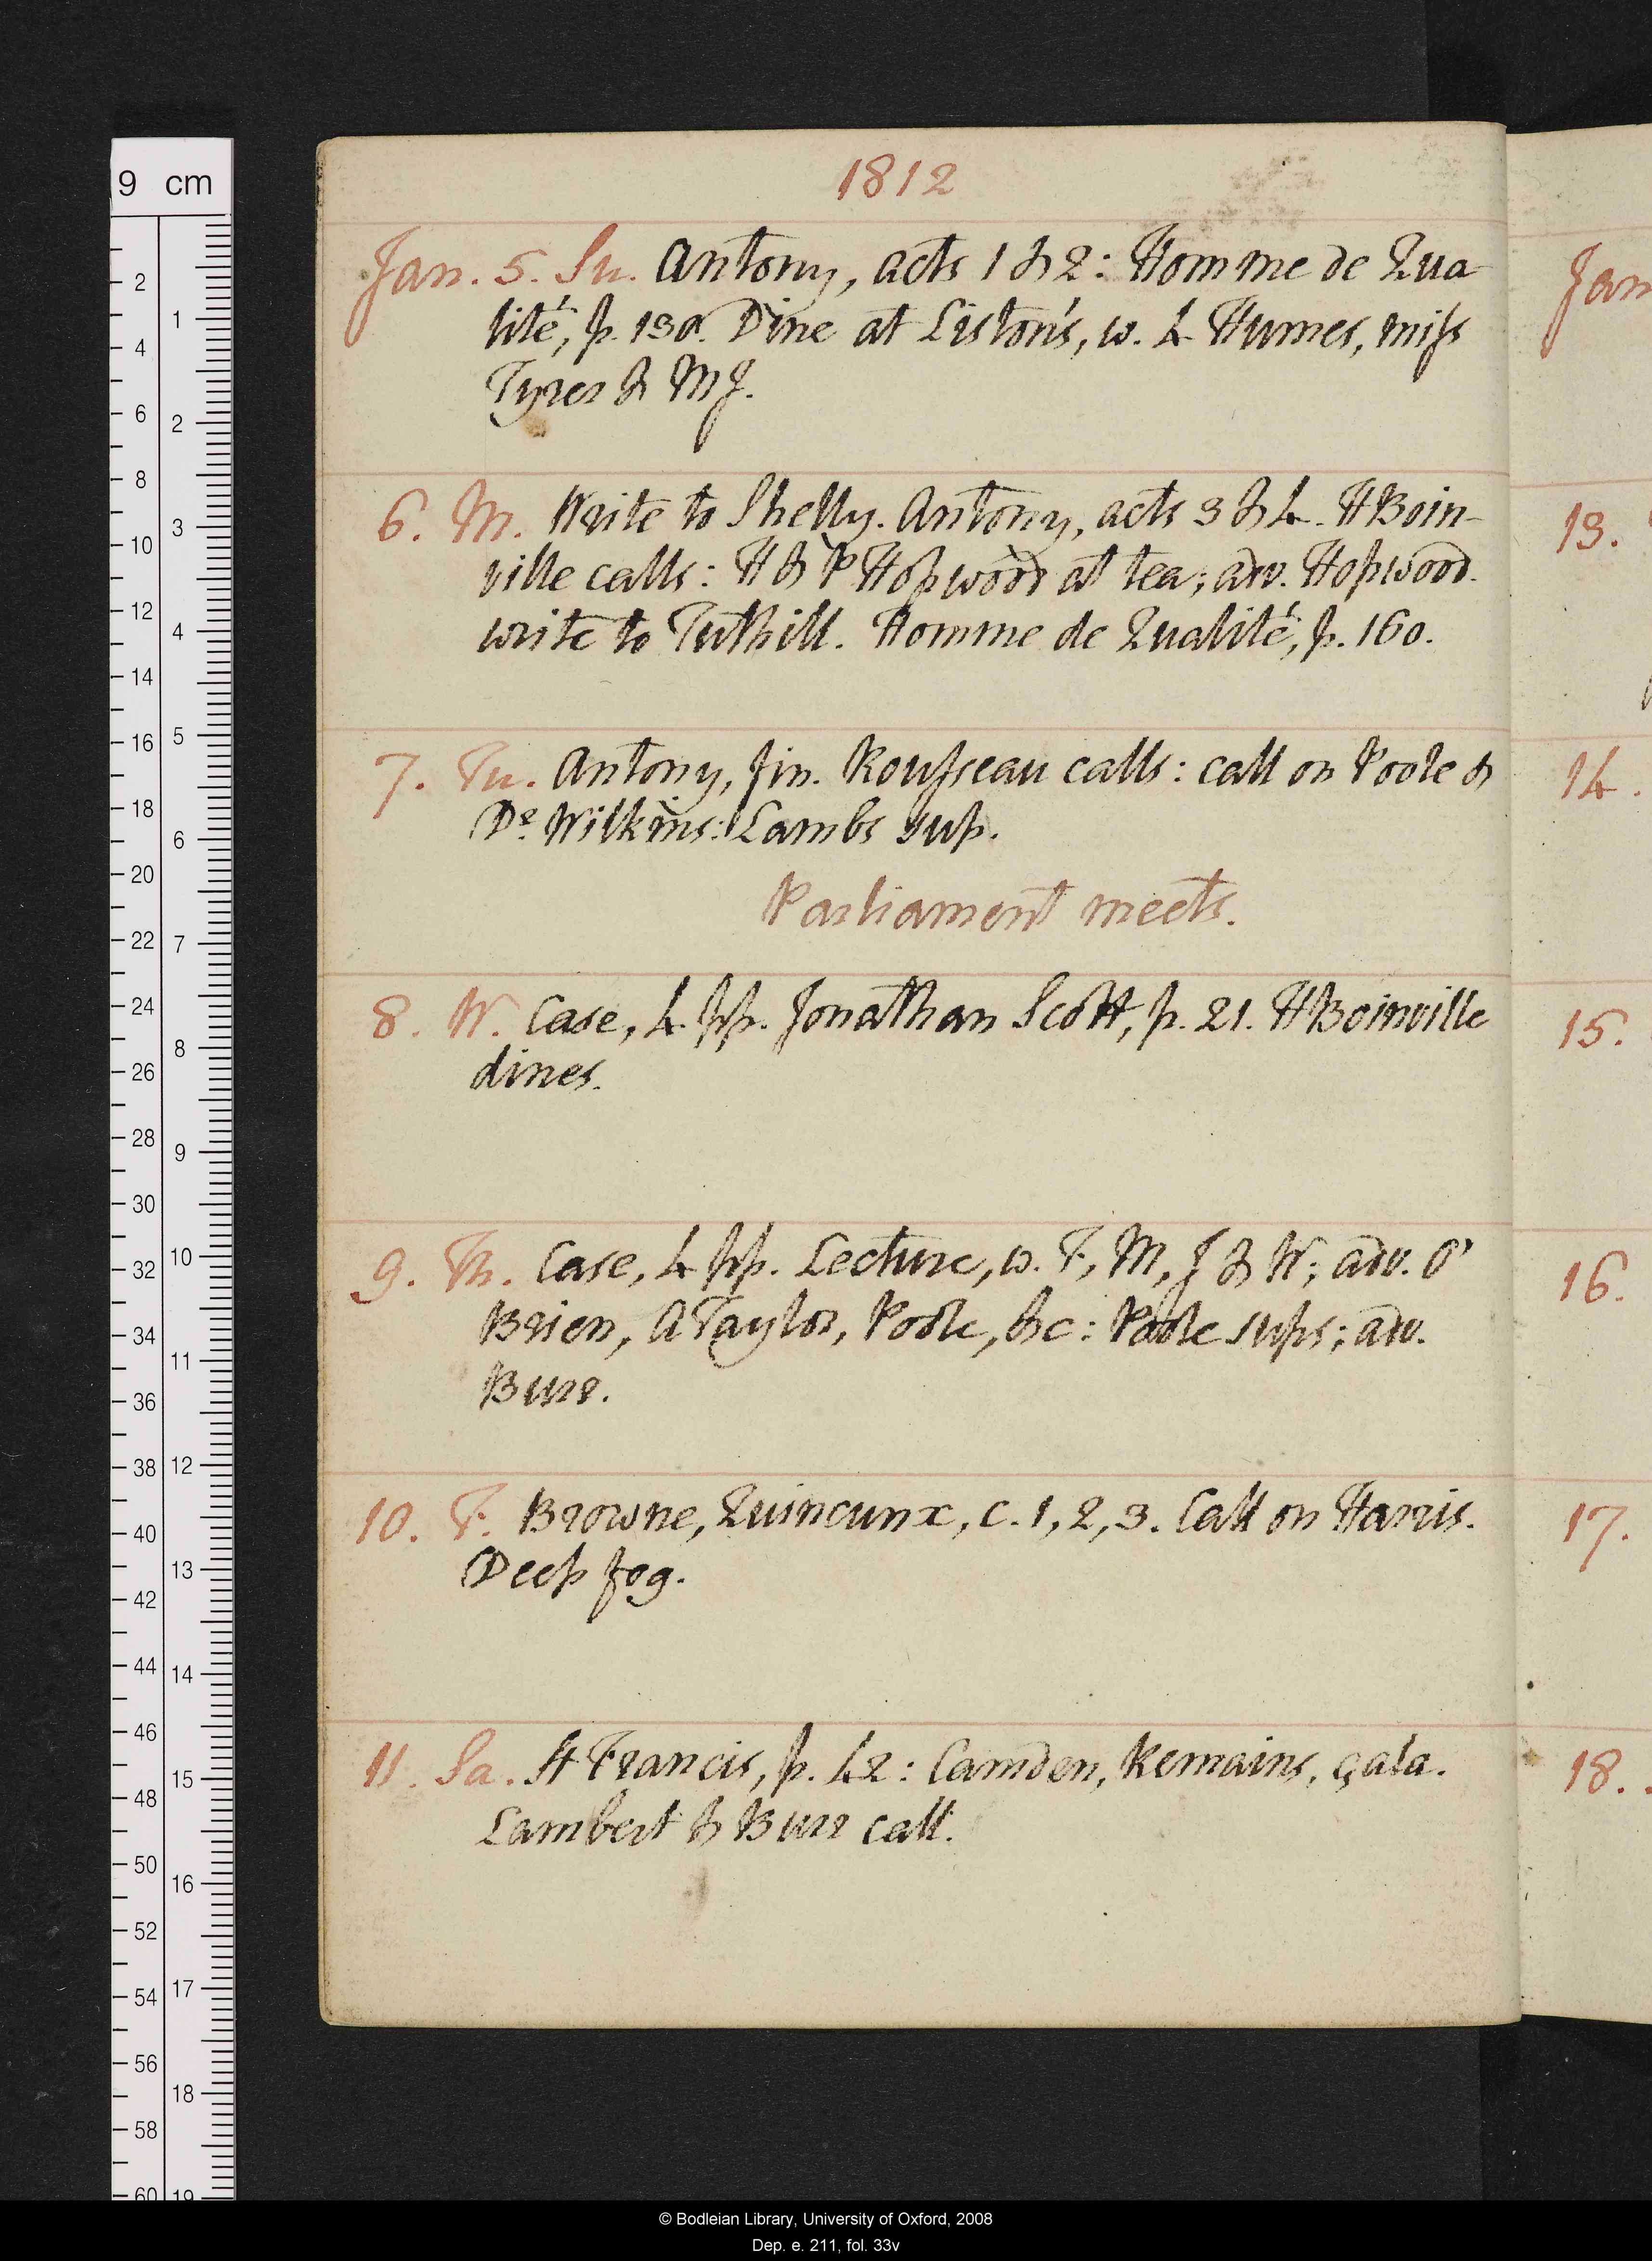 1812
Jan. 5. Su. Antony, acts 1 & 2: Homme de Qua-
lité, p. 130. Dine at Liston's, w. 4 Humes, miſs
Tyrer & MJ.
6. M. Write to Shelly. Antony, acts 3 & 4. H Boin-
ville calls: H & P Hopwood at tea; adv. Hopwood.
write to Tuthill. Homme de Qualité, p. 160.
7. Tu. Antony, fin. Rouſseau calls: call on Poole &
Dr Wilkins: Lambs sup.
Parliament meets.
8. W. Case, 4 pp. Jonathan Scott, p. 21. H Boinville
dines.
9. Th. Case, 4 pp. Lecture, w. F, M, J & W; adv. O'
Brien, A Taylor, Poole, &c: Poole sups; adv.
Burr.
10. F. Browne, Quincunx, c. 1, 2, 3. Call on Harris.
Deep fog.
11. Sa. St Francis, p. 42: Camden, Remains, çala.
Lambert & Burr call.
Jan
13.
14.
15.
16.
17.
18.
9 cm
2
4
6
8
10
12
14
16
18
20
22
24
26
28
30
32
34
36
38
40
42
44
46
48
50
52
54
56
58
60
1
2
3
4
5
6
7
8
9
10
11
12
13
14
15
16
17
18
19
© Bodleian Library, University of Oxford, 2008
Dep. e. 211, fol. 33v